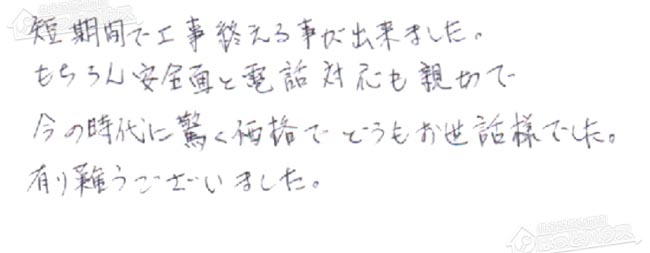 短期間で工事終える事が出来ました。
もちろん安全面と電話対応も親切で
今の時代に驚く価格でどうもお世話様でした。
有り難うございました。